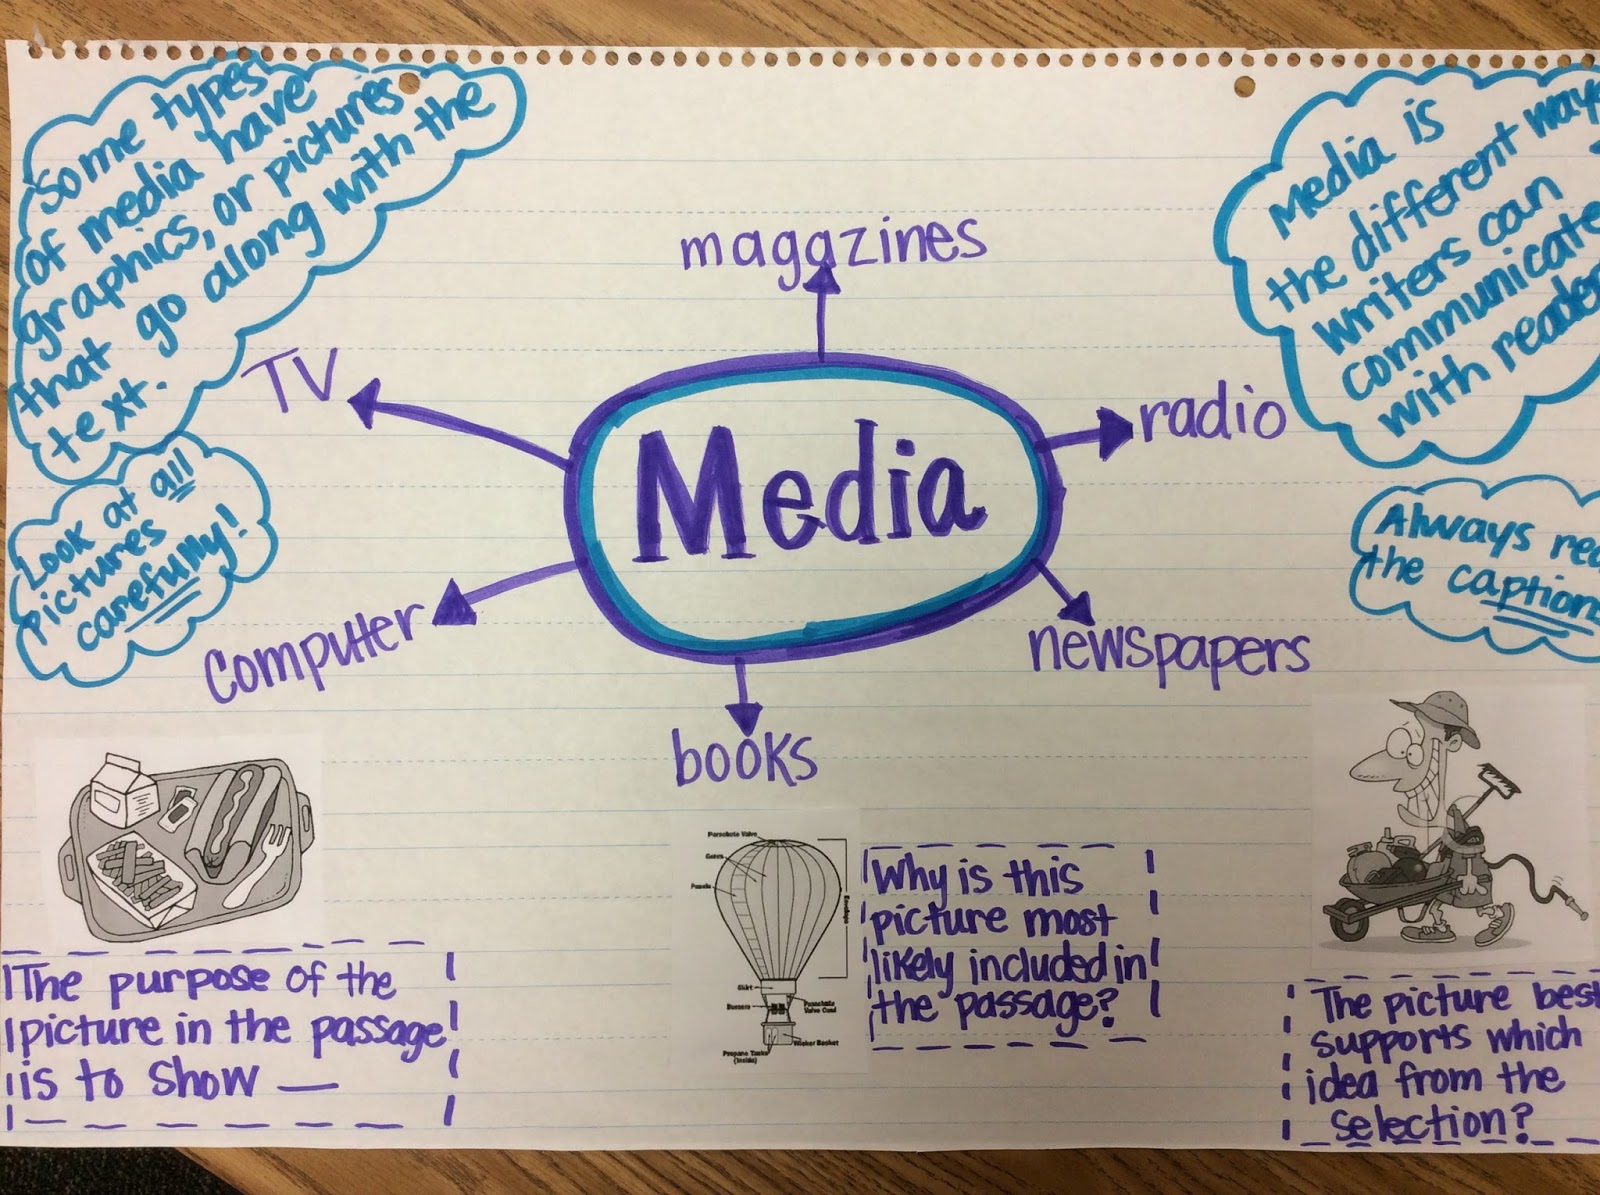 Some types
of media have
graphics, or pictures
that go along with the
text.
Look at all
pictures
carefully!
Media is
the different ways
writers can
communicate
with reader
Always rea
the caption
magazines
TV
radio
Media
computer
newspapers
books
The purpose of the
picture in the passage
is to show —
Parachute Valve
Gores
Panels
Envelope
Skirt
Burners
Parachute
Valve Cord
Wicker Basket
Propane Tanks
(inside)
Why is this
picture most
likely included in
the passage?
The picture best
supports which
idea from the
selection?